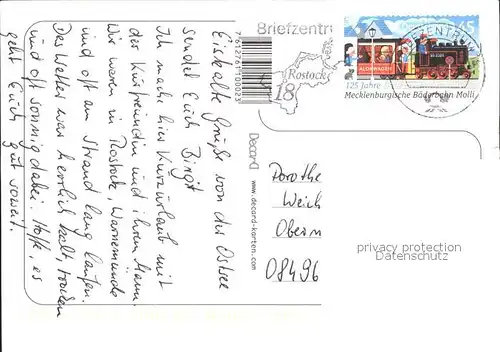 Eiskalte Grüße von der Ostsee
sendet Euch Birgit
Ich mache hier Kurzurlaub mit
der Kurfreundin und ihrem Mann.
Wir waren in Rostock, Warnemünde
und oft am Strand lang laufen.
Das Wetter war herrlich kalt, trocken
und oft sonnig dabei. Hoffe, es
geht Euch gut soweit.
7612261100023
Decard
www.decard-karten.com
Briefzentru
Rostock
18
ZENTRUM
45
125 Jahre
Mecklenburgische Bäderbahn Molli
Dorothe
Weich
Obern
08496
privacy protection
Datenschutz